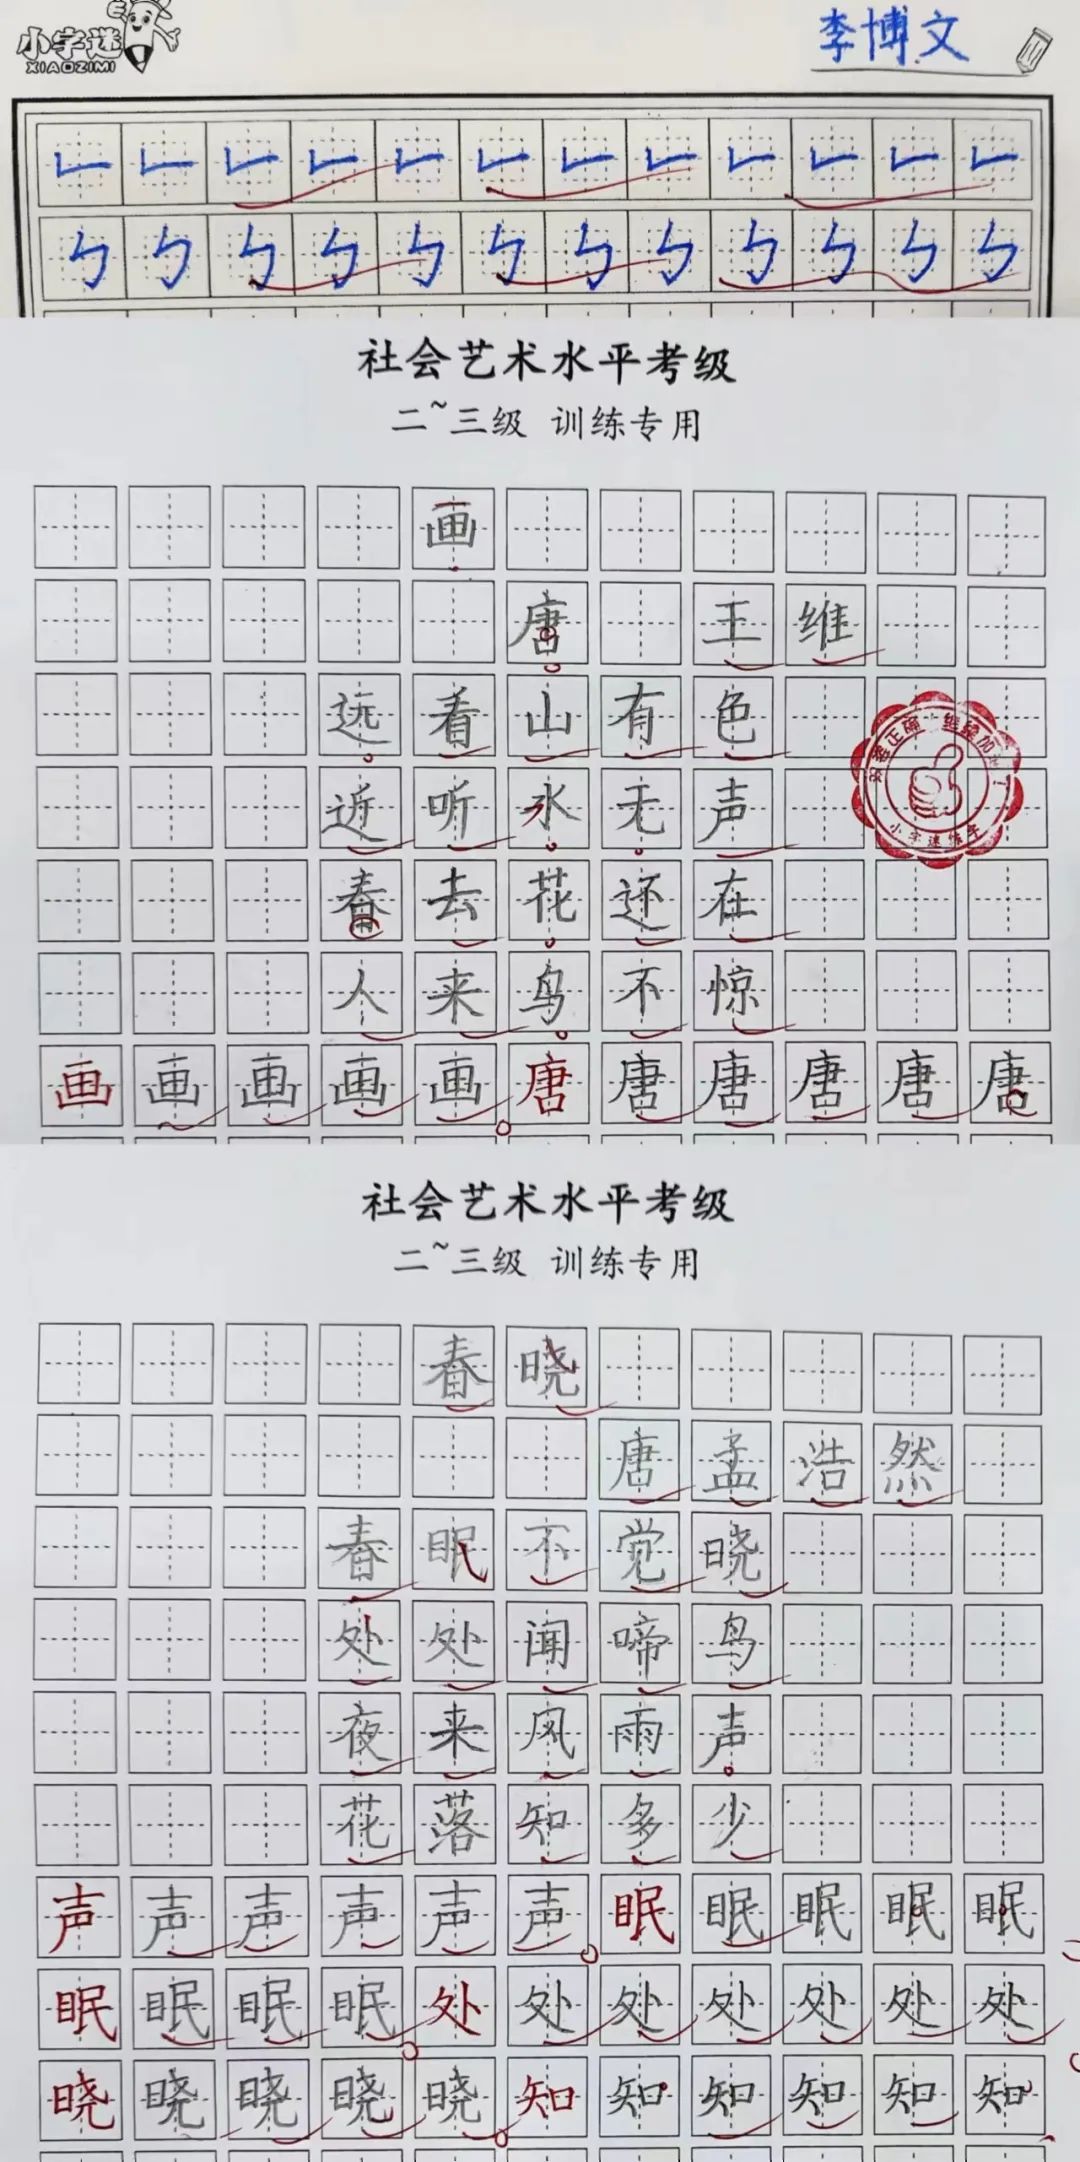 小字迷
XIAOZIMI
李博文
社会艺术水平考级
二~三级 训练专用
画
唐 王维
远看山有色
近听水无声
春去花还在
人来鸟不惊
画画画画画唐唐唐唐唐唐
小字迷练字
社会艺术水平考级
二~三级 训练专用
春晓
唐孟浩然
春眠不觉晓
处处闻啼鸟
夜来风雨声
花落知多少
声声声声声声眠眠眠眠眠
眠眠眠眠处处处处处处处
晓晓晓晓晓知知知知知知